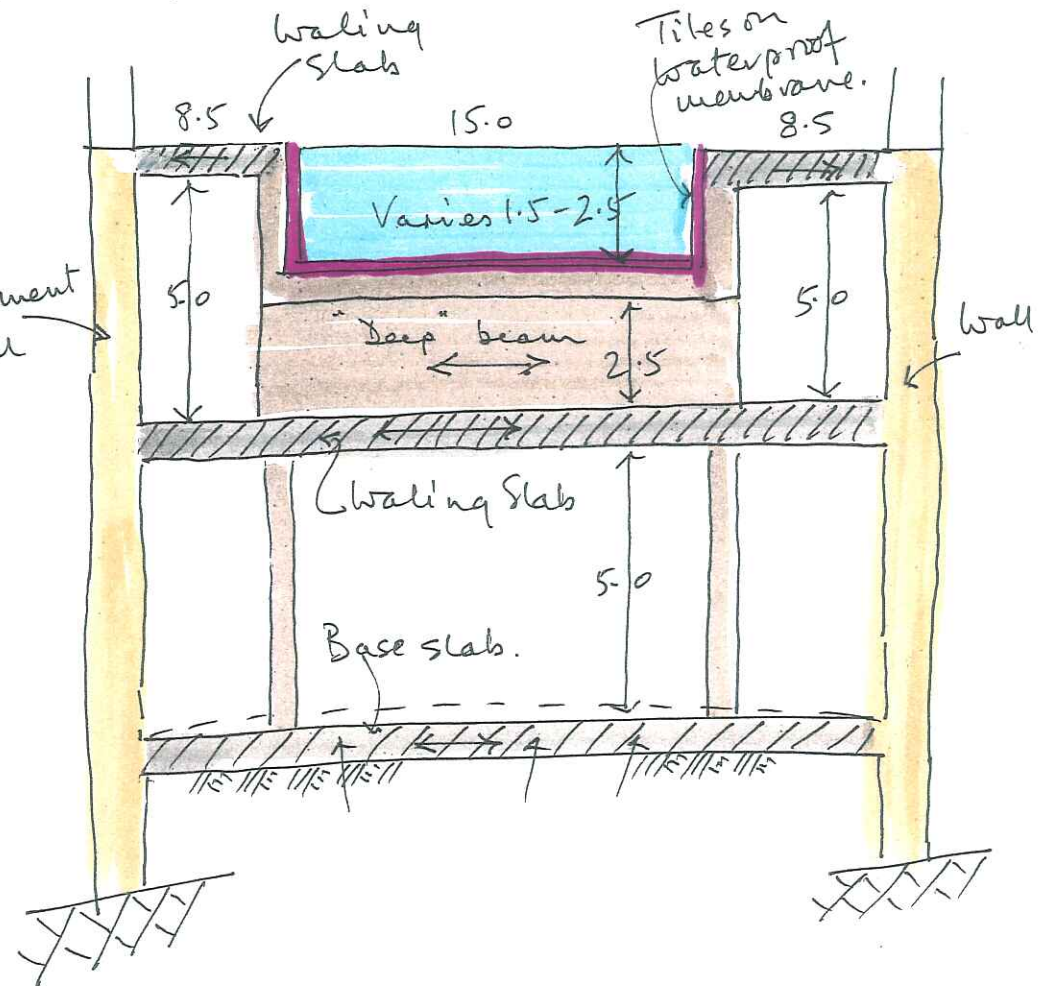 Waling
slab
Tiles on
waterproof
membrane.
8.5
15.0
8.5
Varies 1.5-2.5
5.0
5.0
"Deep" beam
2.5
Wall
Waling Slab
5.0
Base slab.